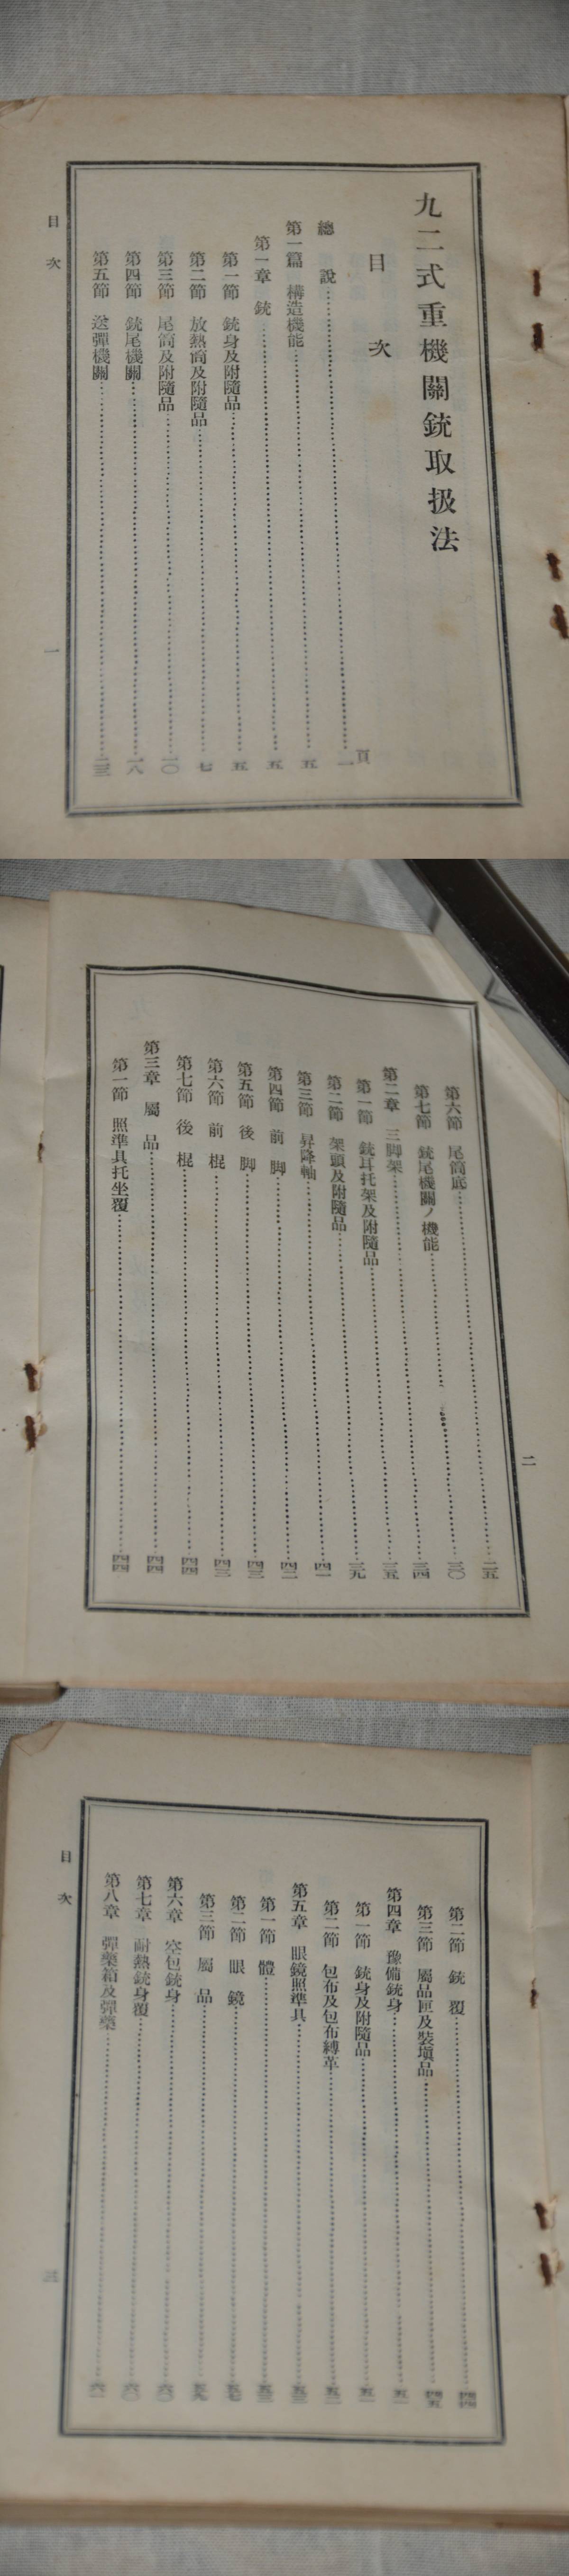 九二式重機關銃取扱法
目次
頁
總説 一
第一篇 構造機能 五
第一章 銃 五
第一節 銃身及附隨品 五
第二節 放熱筒及附隨品 七
第三節 尾筒及附隨品 一〇
第四節 銃尾機關 一八
第五節 送彈機關 二三
目次
一
二
第六節 尾筒底 二五
第七節 銃尾機關ノ機能 三〇
第二章 三脚架 三四
第一節 銃耳托架及附隨品 三五
第二節 架頭及附隨品 三九
第三節 昇降軸 四一
第四節 前脚 四二
第五節 後脚 四三
第六節 前棍 四三
第七節 後棍 四四
第三章 屬品 四四
第一節 照準具托坐覆 四四
第二節 銃覆 四四
第三節 屬品匣及裝塡品 四五
第四章 豫備銃身 五一
第一節 銃身及附隨品 五一
第二節 包布及包布縛革 五二
第五章 眼鏡照準具 五三
第一節 體 五三
第二節 眼鏡 五七
第三節 屬品 五九
第六章 空包銃身 六〇
第七章 耐熱銃身覆 六〇
第八章 彈藥箱及彈藥 六一
目次
三